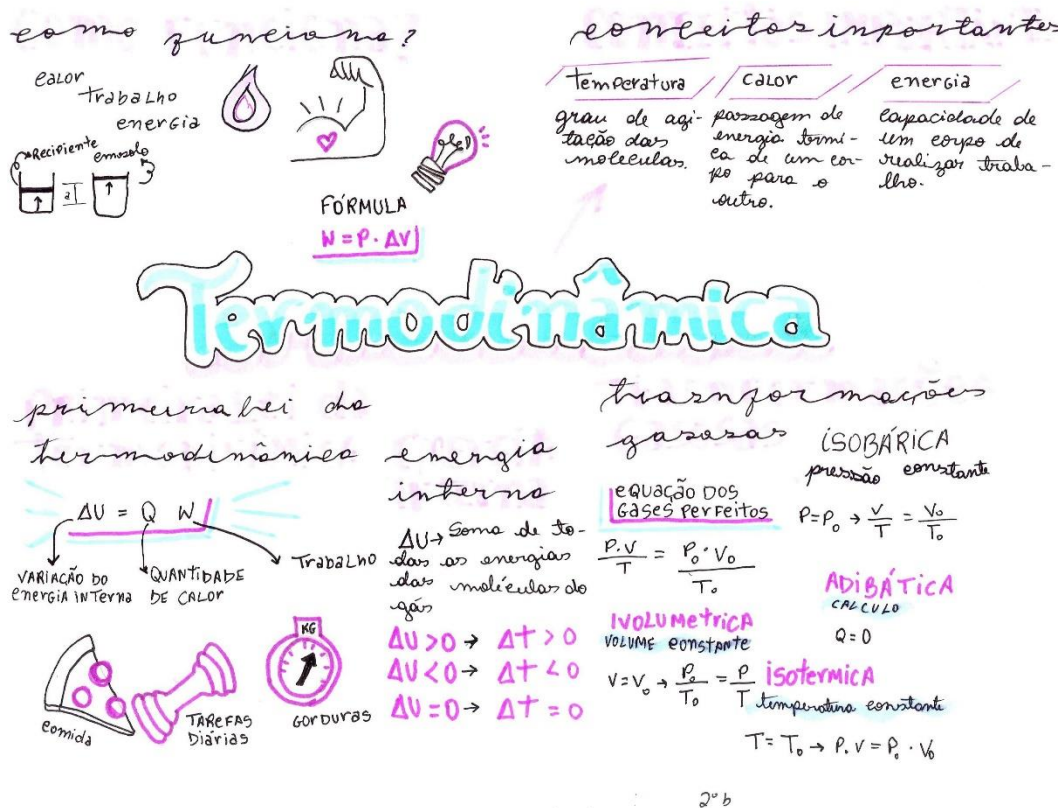 como funciona?
calor
trabalho
energia
Recipiente
emosolo
FÓRMULA
W = P · ΔV
conceitos inportantes
temperatura
grau de agi-
tação das
moleculas.
calor
passagem de
energia termi-
ca de um cor-
po para o
outro.
energia
capacidade de
um corpo de
realizar traba-
lho.
Termodinâmica
primeira lei da
termodinâmica
ΔU = Q W
VARIAÇÃO DO
energia INTerna
QUANTIDADE
DE CALOR
Trabalho
comida
TAREFAS
Diárias
KG
GORDURAS
energia
interna
ΔU → Soma de to-
das as energias
das moléculas do
gás
ΔU > 0 → Δt > 0
ΔU < 0 → Δt < 0
ΔU = 0 → Δt = 0
trasnformações
gasosas
eQUAÇÃO DOS
GASES PERFEITOS
P.V/T = P₀·V₀/T₀
IVOLUMETRICA
VOLUME constante
V = V₀ → P₀/T₀ = P/T
iSOBÁRICA
pressão constante
P = P₀ → V/T = V₀/T₀
ADIBÁTICA
CALCULO
Q = 0
isotermica
temperatura constante
T = T₀ → P.V = P₀ · V₀
2º b